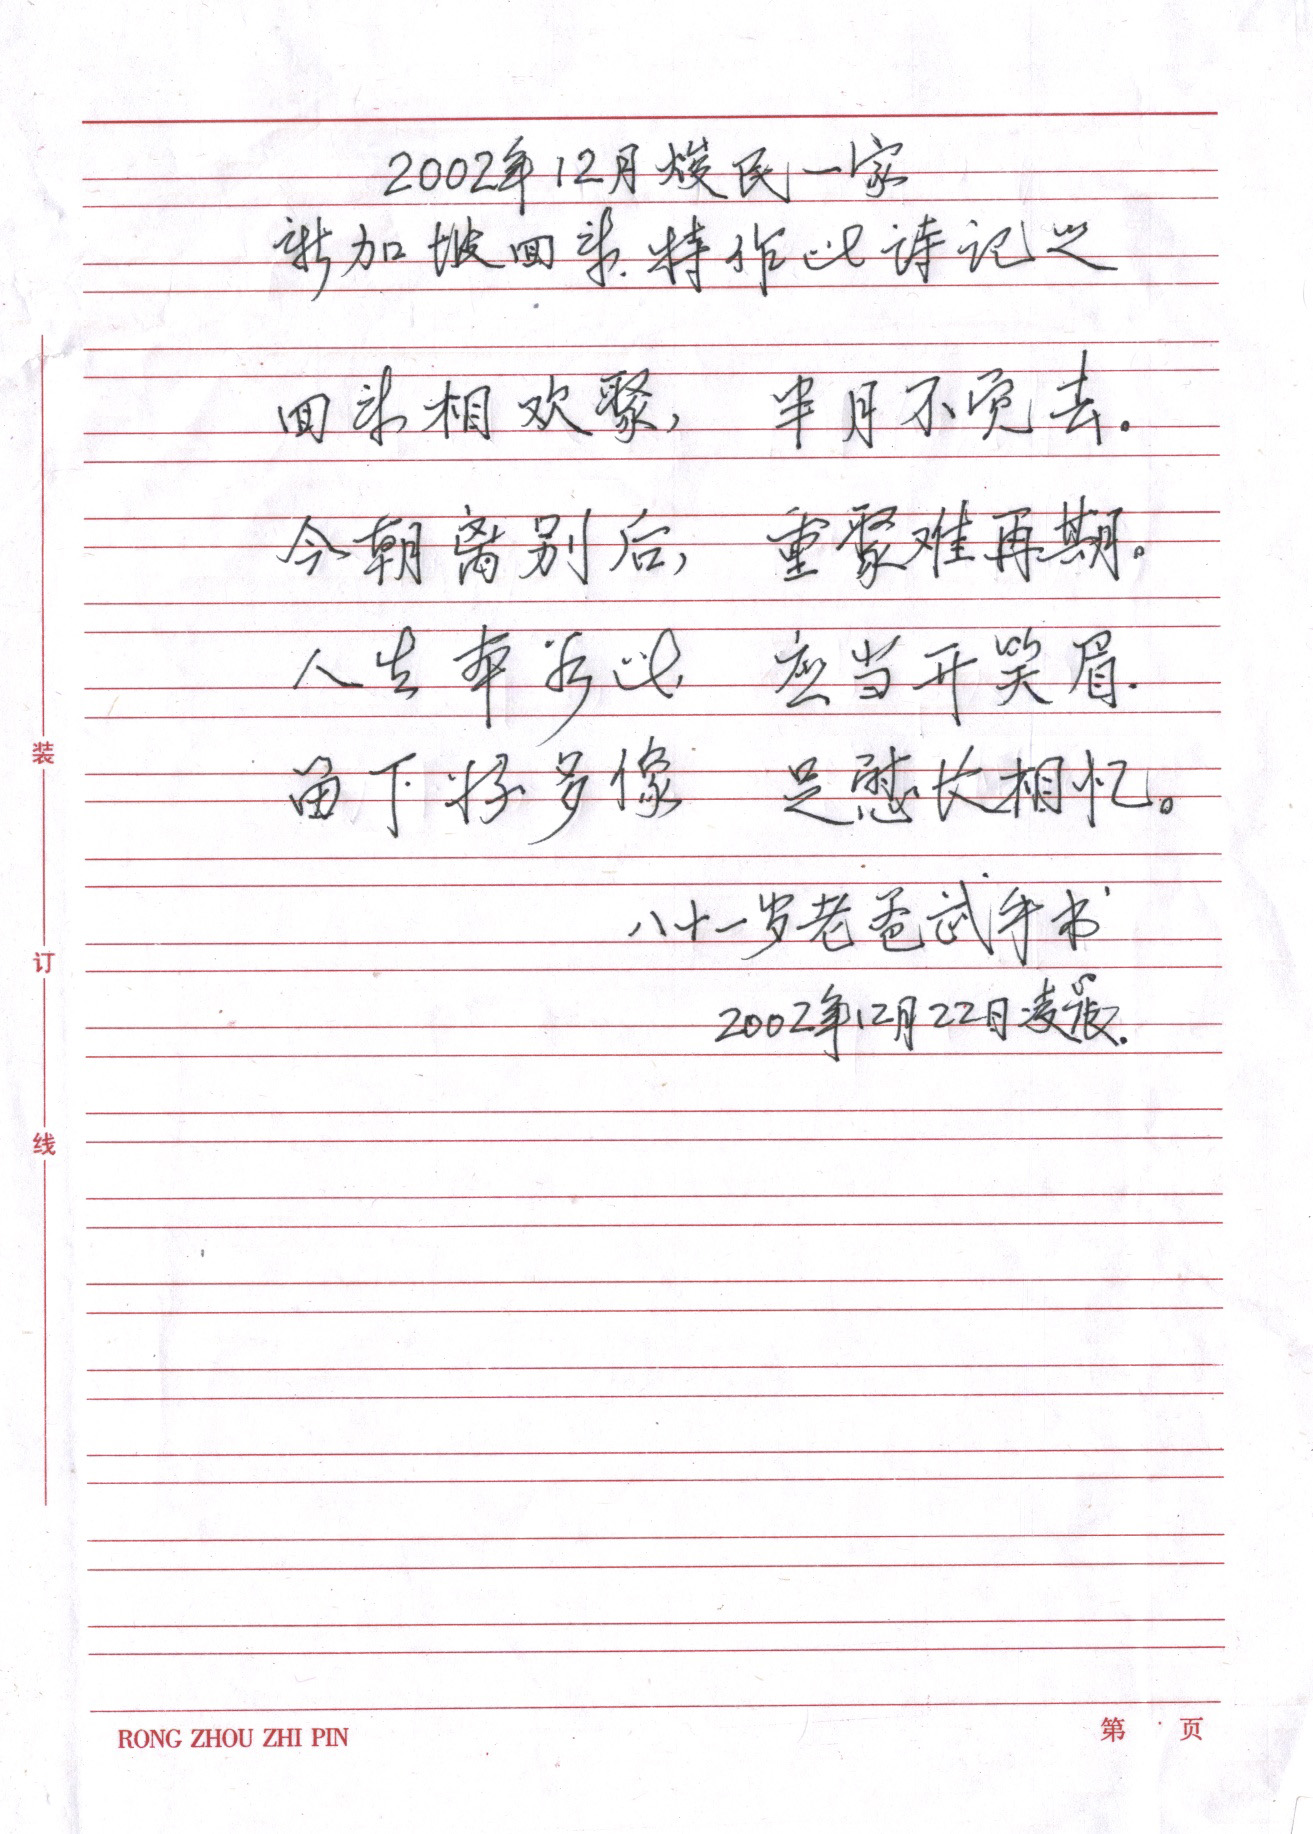 2002年12月焌民一家
新加坡回来.特作此诗记之
回来相欢聚, 半月不觉去。
今朝离别后, 重聚难再期。
人生率如此 应当开笑眉.
留下好多像 足慰长相忆。
八十一岁老爸试手书
2002年12月22日凌晨.
装
订
线
RONG ZHOU ZHI PIN
第 页